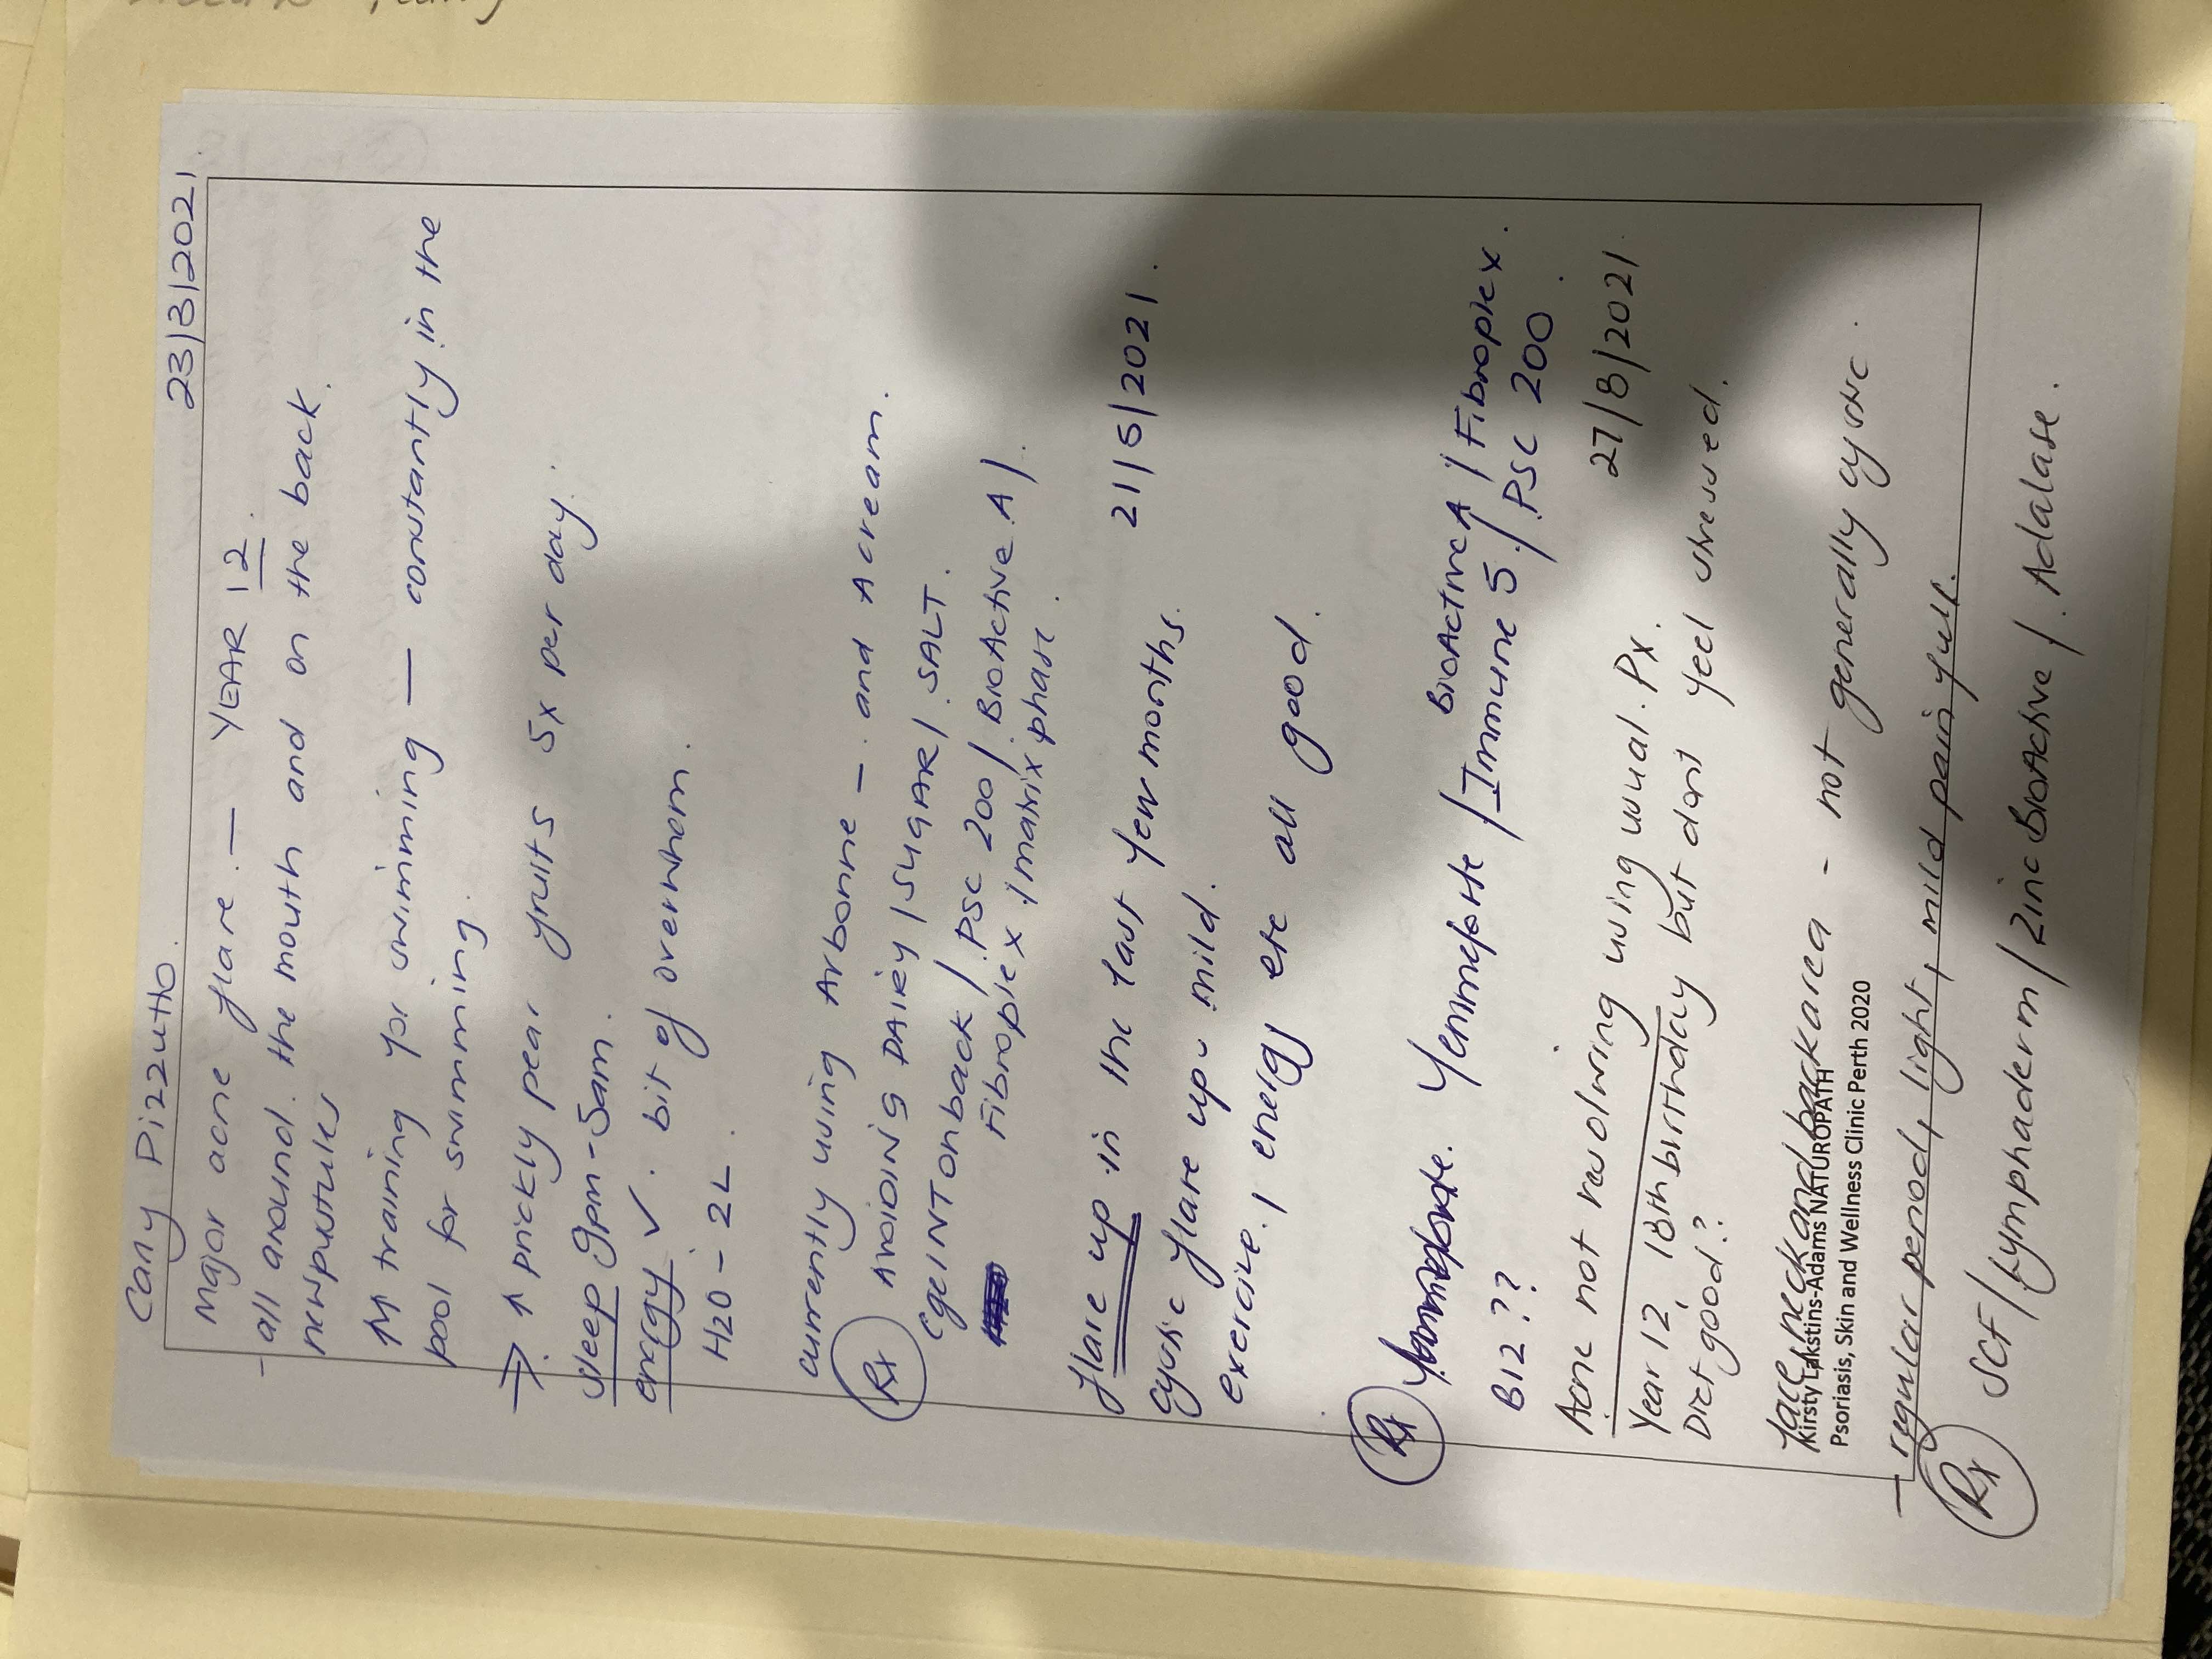 Carly Pizzutto. 23/3/2021
Major acne flare. — YEAR 12.
- all around. the mouth and on the back.
new pustules
↑↑ training for swimming — constantly in the
pool for swimming.
→ ↑ prickly pear fruits 5x per day.
sleep 9pm-5am.
energy ✓. bit of overwhem.
H20 - 2L.
currently using Arbonne - and A cream.
Rx AVOIDING DAIRY / SUGAR / SALT.
Cge INTon back / PSC 200 / BioActive A /
Fibroplex / matrix phase.
flare up in the last few months. 21/6/2021.
cystic flare up - mild.
exercise / energy etc all good.
Rx Femmeforte / BioActive A / Fibroplex.
Immune 5 / PSC 200.
B12??
Acne not resolving using usual Px. 27/8/2021
Year 12, 18th birthday but dont feel stressed.
Diet good?
face neck and back area - not generally cystic.
Kirsty Lakstins-Adams NATUROPATH
Psoriasis, Skin and Wellness Clinic Perth 2020
- regular period, light, mild pain full.
Rx SCF / Lymphaderm / Zinc BioActive / Adalase.